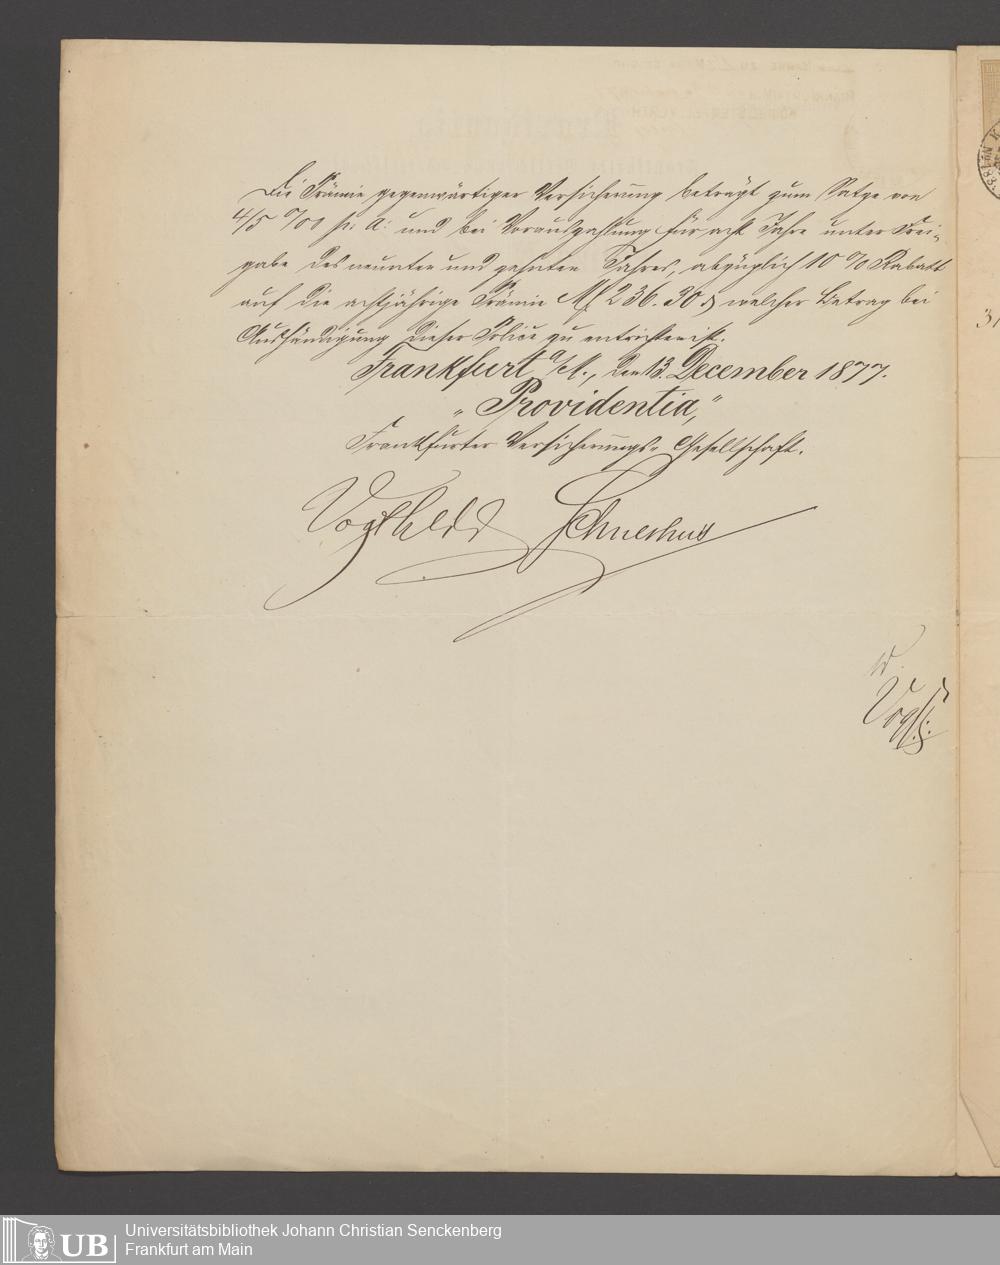 Die Prämie gegenwärtiger Versicherung beträgt zum Satze von
4/5 0/00 p. a: und bei Vorauszahlung für acht Jahre unter Frei-
gabe des neunten und zehnten Jahres, abzüglich 10 % Rabatt
auf die achtjährige Prämie M 236. 30 ₰ welcher Betrag bei
Aushändigung dieser Police zu entrichten ist.
Frankfurt a/M., den 13. December 1877.
"Providentia,"
Frankfurter Versicherungs-Gesellschaft.
Universitätsbibliothek Johann Christian Senckenberg
UB Frankfurt am Main